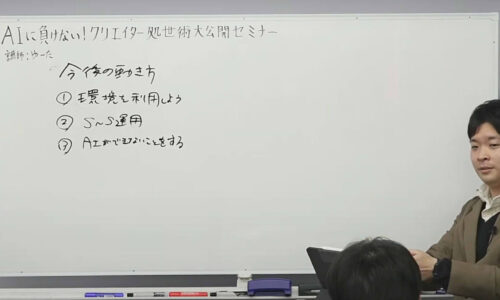 AIに負けない！クリエイター処世術大公開セミナー
講師：ゆーた
今後の動き方
① 環境を利用しよう
② S〜S運用
③ AIができないことをする